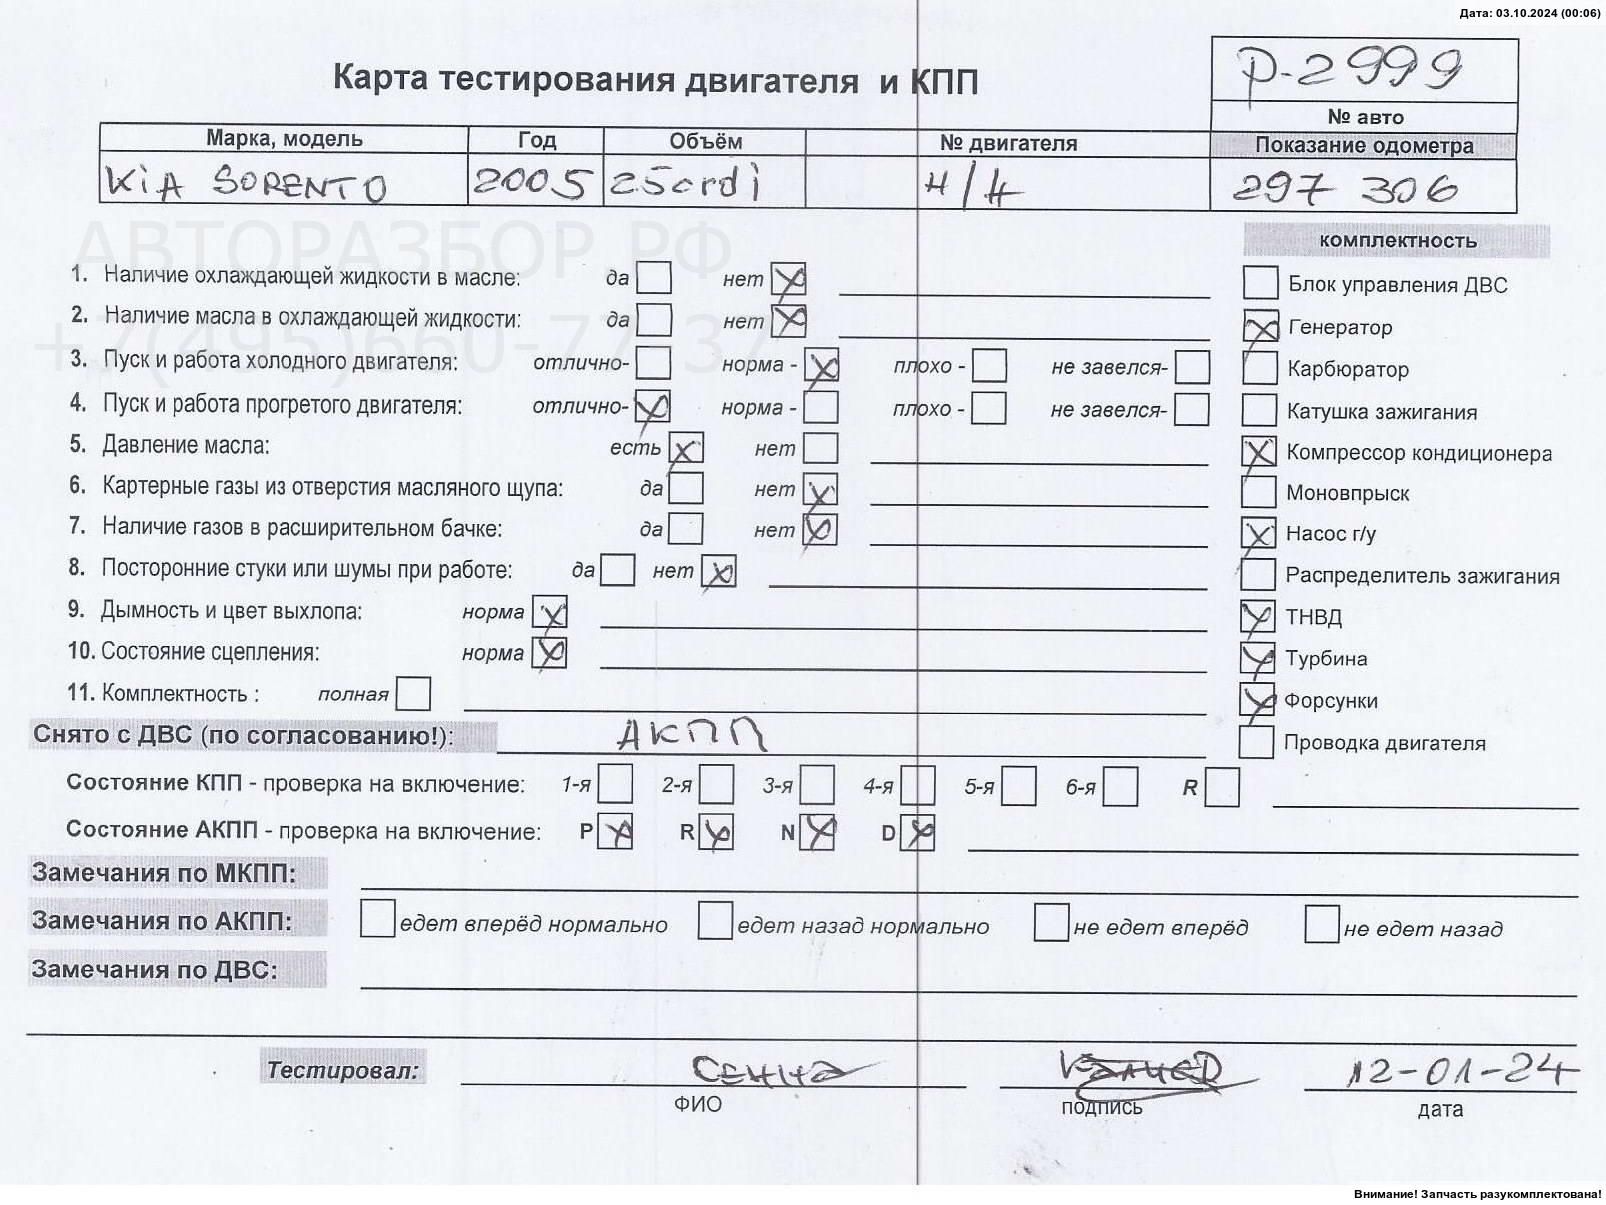 Дата: 03.10.2024 (00:06)
Р-2999
Карта тестирования двигателя и КПП
№ авто
Марка, модель Год Объём № двигателя Показание одометра
KIA SORENTO 2005 25crdi Н/Н 297 306
АВТОРАЗБОР.РФ
комплектность
1. Наличие охлаждающей жидкости в масле: да нет
Блок управления ДВС
2. Наличие масла в охлаждающей жидкости: да нет
Генератор
+7(495)660-77-37
3. Пуск и работа холодного двигателя: отлично- норма - плохо - не завелся-
Карбюратор
4. Пуск и работа прогретого двигателя: отлично- норма - плохо - не завелся-
Катушка зажигания
5. Давление масла: есть нет
Компрессор кондиционера
6. Картерные газы из отверстия масляного щупа: да нет
Моновпрыск
7. Наличие газов в расширительном бачке: да нет
Насос г/у
8. Посторонние стуки или шумы при работе: да нет
Распределитель зажигания
9. Дымность и цвет выхлопа: норма
ТНВД
10. Состояние сцепления: норма
Турбина
11. Комплектность : полная
Форсунки
Снято с ДВС (по согласованию!): АКПП
Проводка двигателя
Состояние КПП - проверка на включение: 1-я 2-я 3-я 4-я 5-я 6-я R
Состояние АКПП - проверка на включение: P R N D
Замечания по МКПП:
Замечания по АКПП: едет вперёд нормально едет назад нормально не едет вперёд не едет назад
Замечания по ДВС:
Тестировал: 12-01-24
ФИО подпись дата
Внимание! Запчасть разукомплектована!